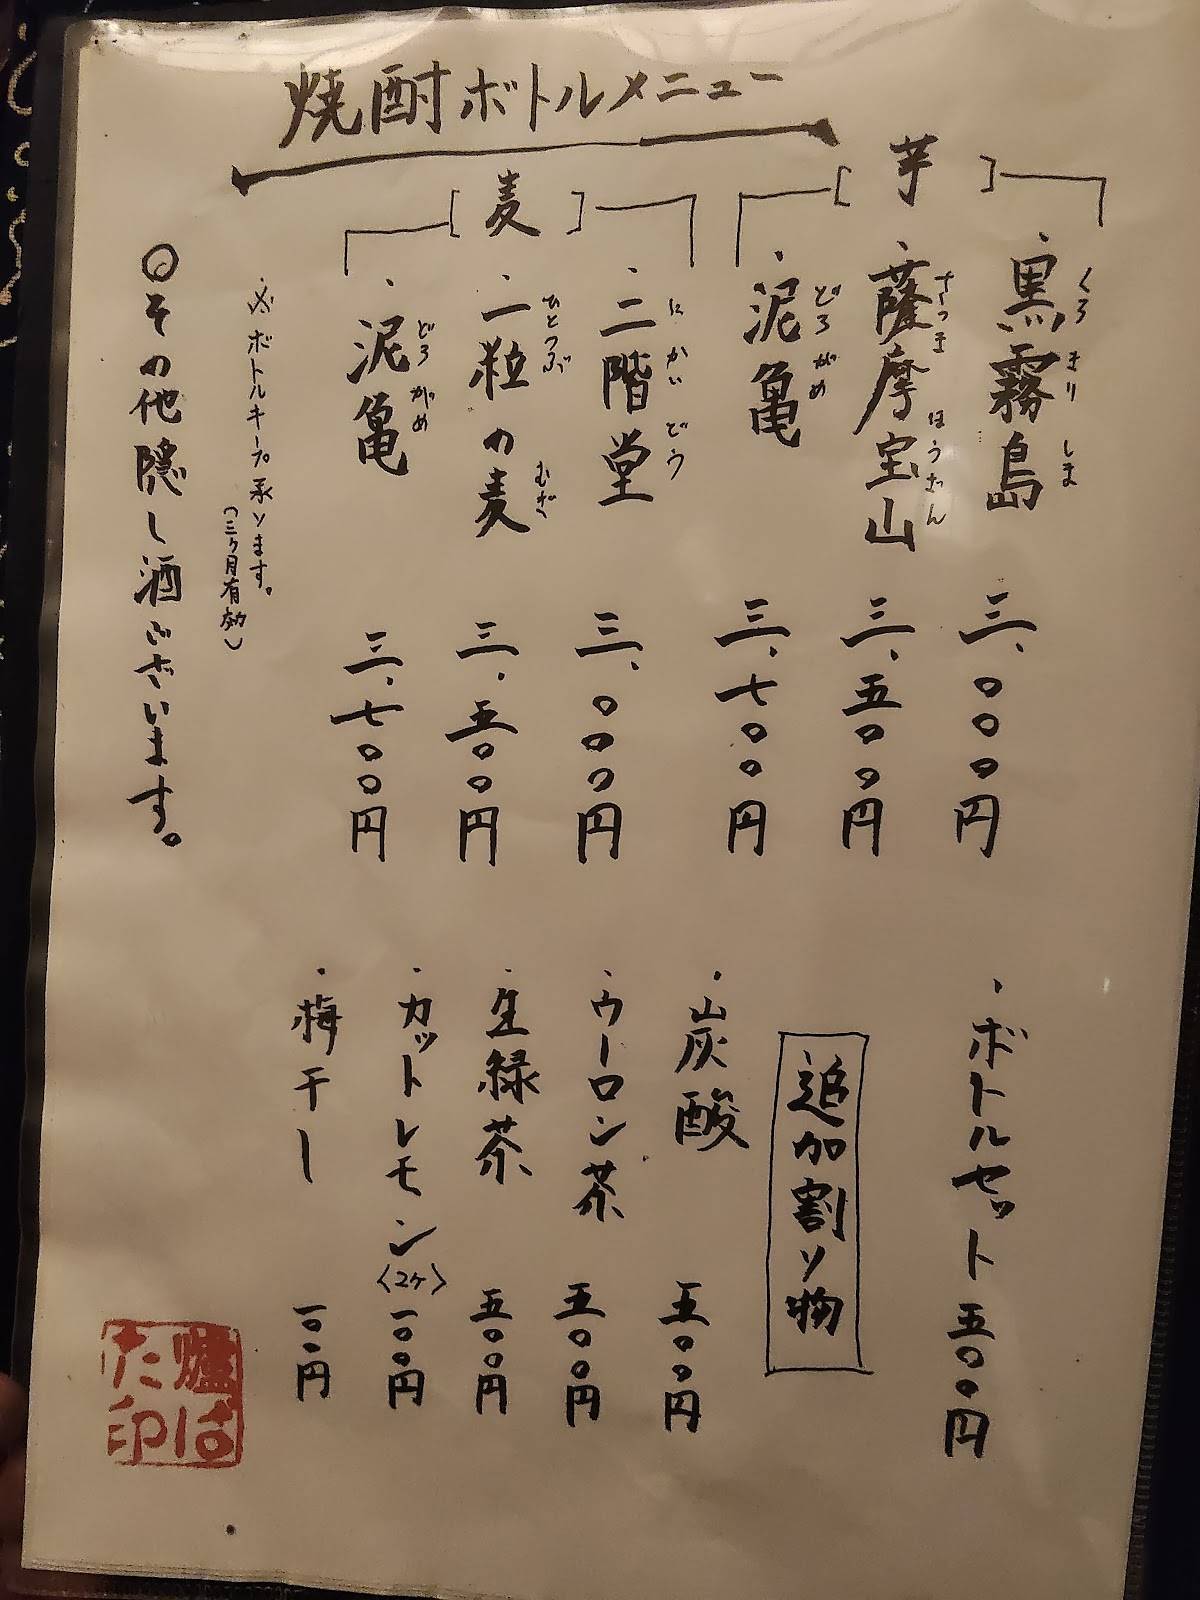 焼酎ボトルメニュー
[芋]
・黒霧島 くろきりしま 三、〇〇〇円
・薩摩宝山 さつまほうざん 三、五〇〇円
・泥亀 どろがめ 三、七〇〇円
[麦]
・二階堂 にかいどう 三、〇〇〇円
・一粒の麦 ひとつぶ むぎ 三、五〇〇円
・泥亀 どろがめ 三、七〇〇円
※ボトルキープ承ります。
(三ヶ月有効)
◎その他隠し酒ございます。
・ボトルセット 五〇〇円
追加割り物
・炭酸 五〇〇円
・ウーロン茶 五〇〇円
・生緑茶 五〇〇円
・カットレモン〈2ヶ〉 一〇〇円
・梅干し 一〇〇円
爐ばた印